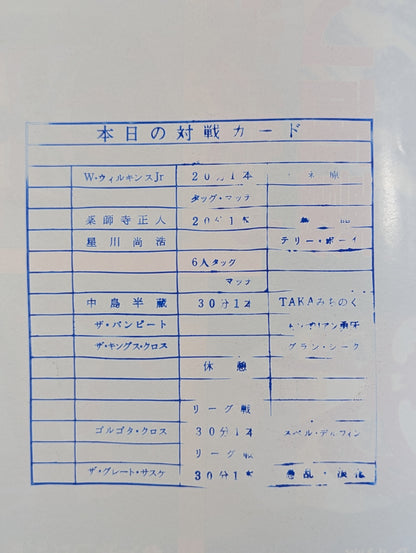 本日の対戦カード
W・ウィルキンスJr 20分1本
タッグ・マッチ
薬師寺正人 20分1本
星川尚浩 テリー・ボーイ
6人タッグ
マッチ
中島半蔵 30分1本 TAKAみちのく
ザ・バンピート
ザ・キングス・クロス グラン・シーク
休憩
リーグ戦
ゴルゴタ・クロス 30分1本 スペル・デルフィン
リーグ戦
ザ・グレート・サスケ 30分1本 愚乱・浪花